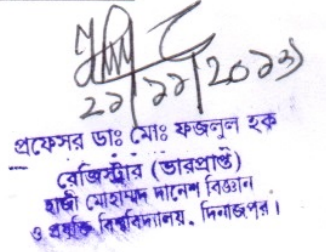 ২১/১১/২০১৩
প্রফেসর ডাঃ মোঃ ফজলুল হক
রেজিস্ট্রার (ভারপ্রাপ্ত)
হাজী মোহাম্মদ দানেশ বিজ্ঞান
ও প্রযুক্তি বিশ্ববিদ্যালয়, দিনাজপুর।